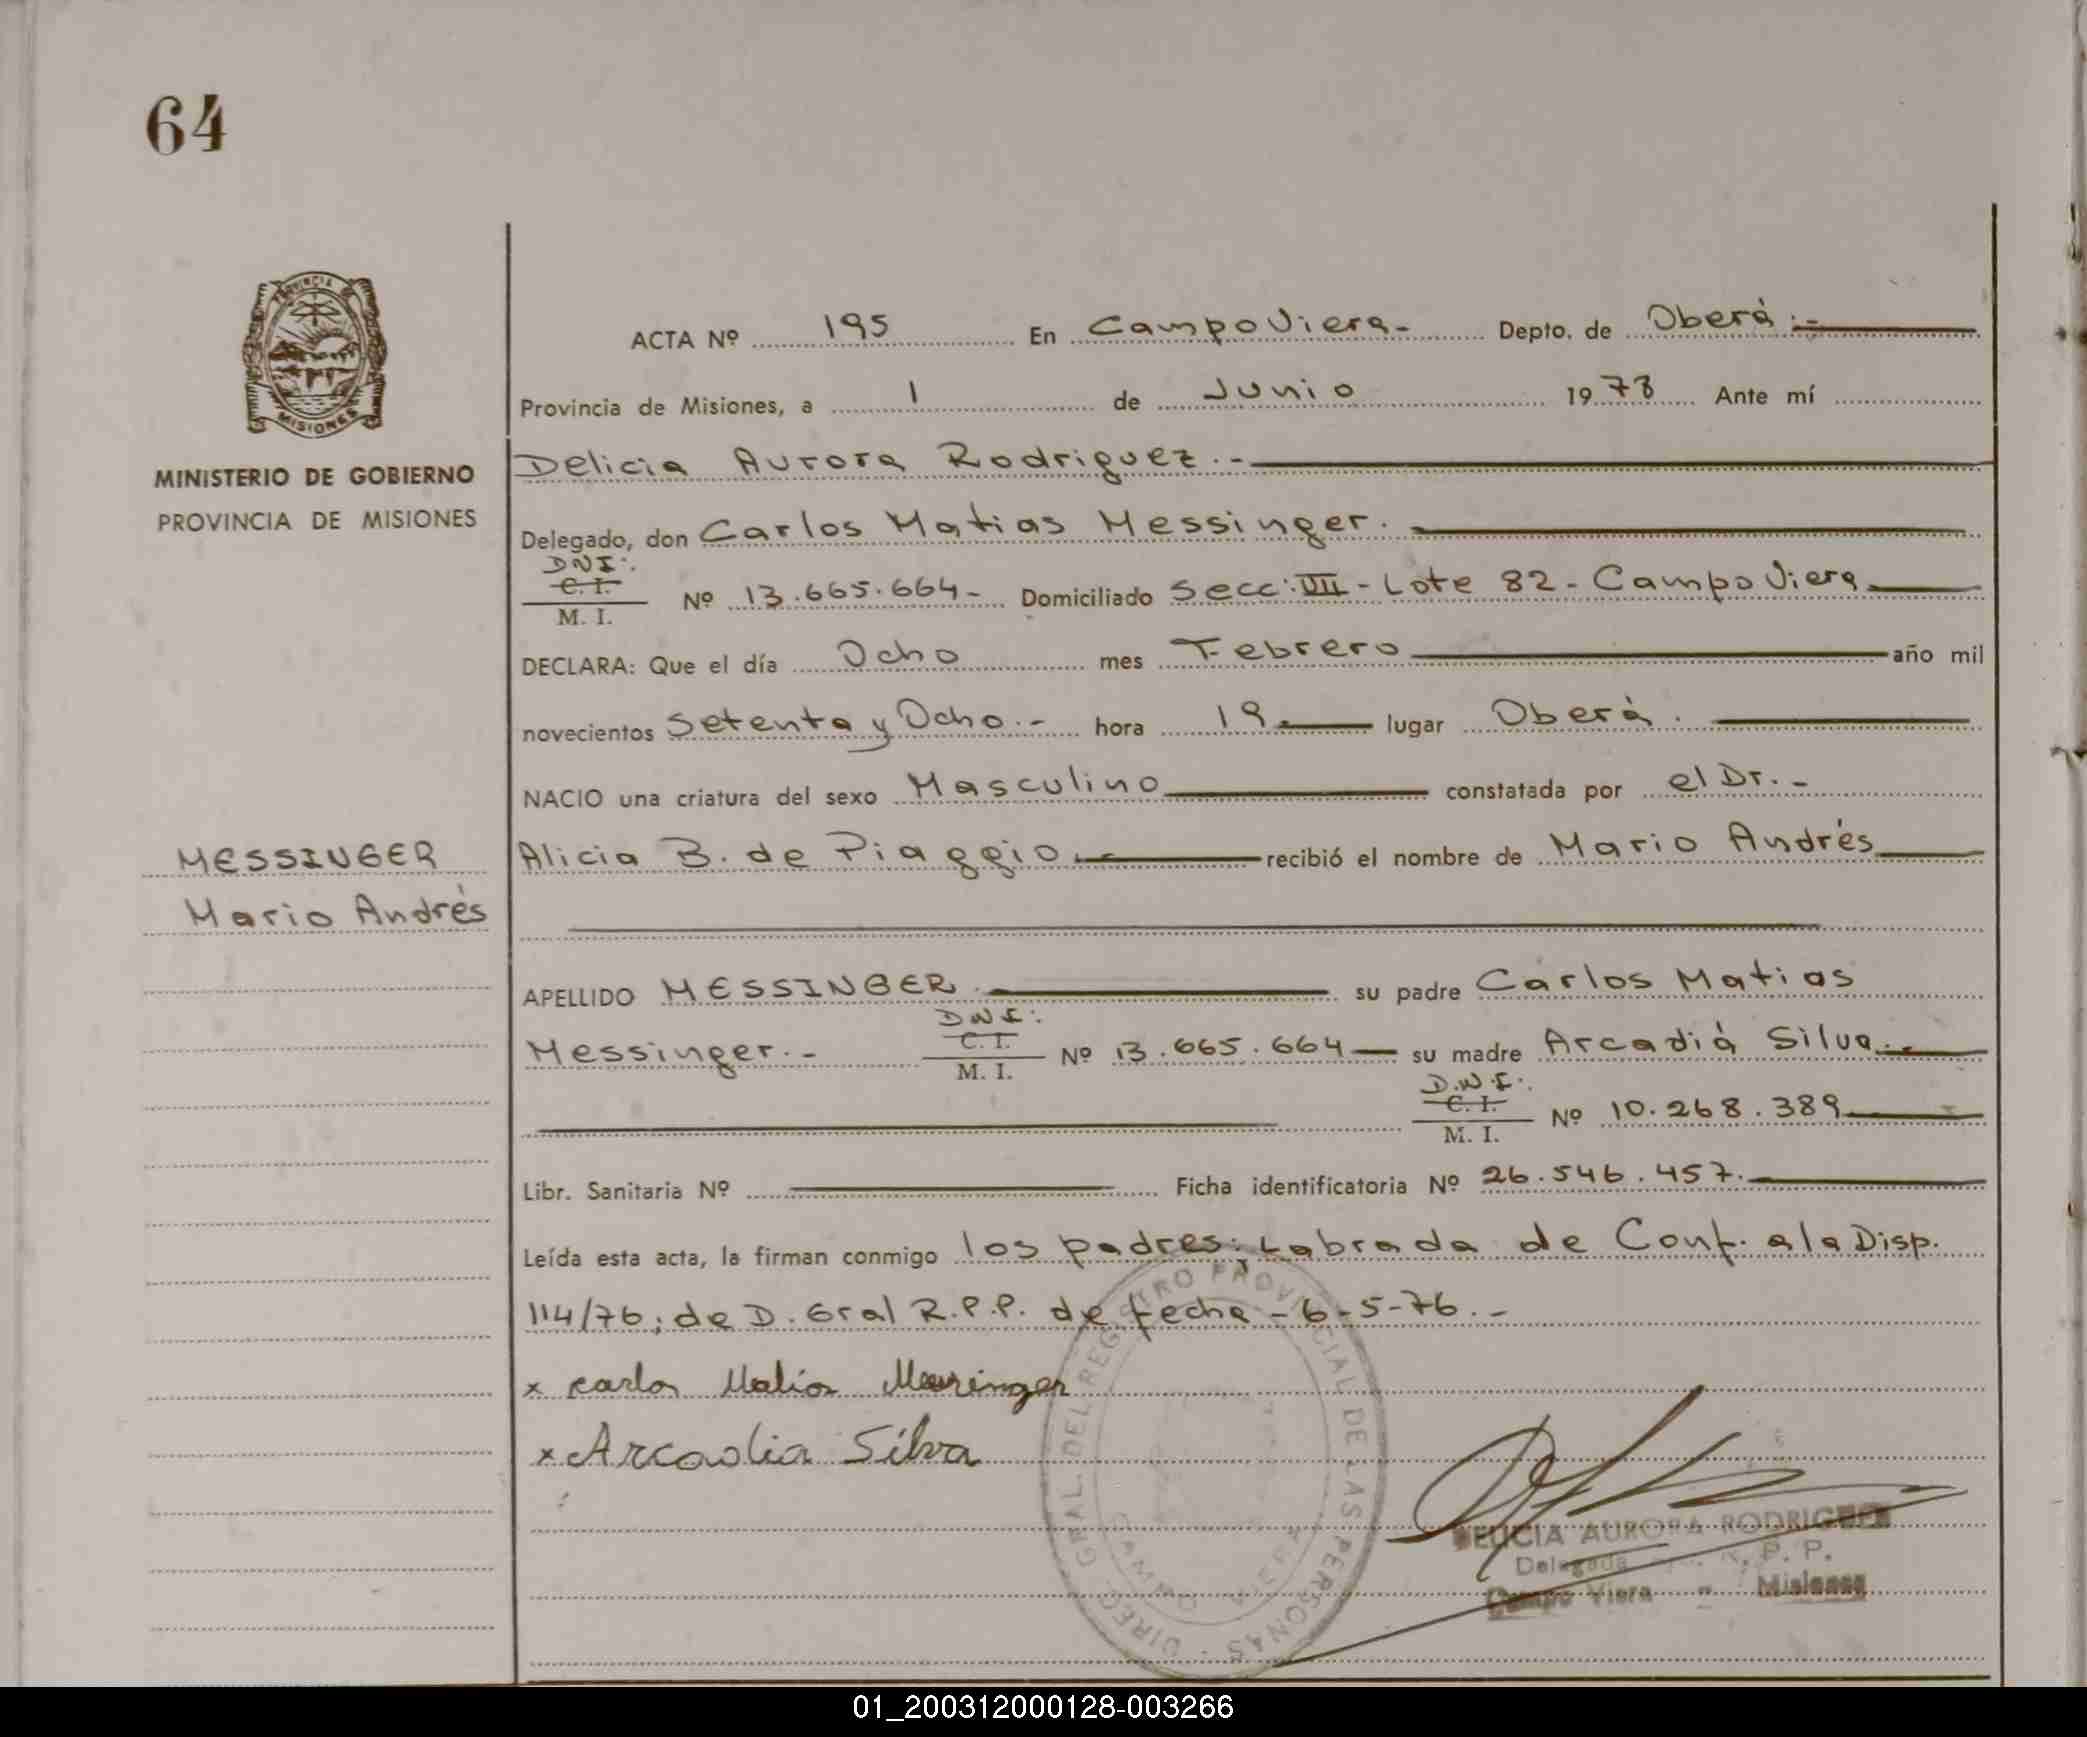 64
PROVINCIA DE
MISIONES
MINISTERIO DE GOBIERNO
PROVINCIA DE MISIONES
MESSINGER
Mario Andrés
ACTA Nº 195 En Campo Viera.- Depto. de Oberá.-
Provincia de Misiones, a 1 de Junio 1978 Ante mí
Delicia Aurora Rodriguez.-
Delegado, don Carlos Matias Messinger.
DNI:
C. I.
M. I. Nº 13.665.664- Domiciliado Secc: VII - Lote 82 - Campo Viera
DECLARA: Que el día Ocho mes Febrero año mil
novecientos Setenta y Ocho.- hora 19 lugar Oberá.
NACIO una criatura del sexo Masculino constatada por el Dr.-
Alicia B. de Piaggio.- recibió el nombre de Mario Andrés
APELLIDO MESSINGER. su padre Carlos Matias
DNI:
C. I.
Messinger.- M. I. Nº 13.665.664 su madre Arcadiá Silva.-
D.N.I.
C. I.
M. I. Nº 10.268.389
Libr. Sanitaria Nº Ficha identificatoria Nº 26.546.457.
Leída esta acta, la firman conmigo los padres. Labrada de Conf. a la Disp.
114/76; de D. Gral R.P.P. de fecha - 6-5-76.-
x Carlos Matias Messinger
x Arcadia Silva
DIREC. GRAL. DEL REGISTRO PROVINCIAL DE LAS PERSONAS
CAMPO VIERA
DELICIA AURORA RODRIGUEZ
Delegada R. P. P.
Campo Viera - Misiones
01_200312000128-003266